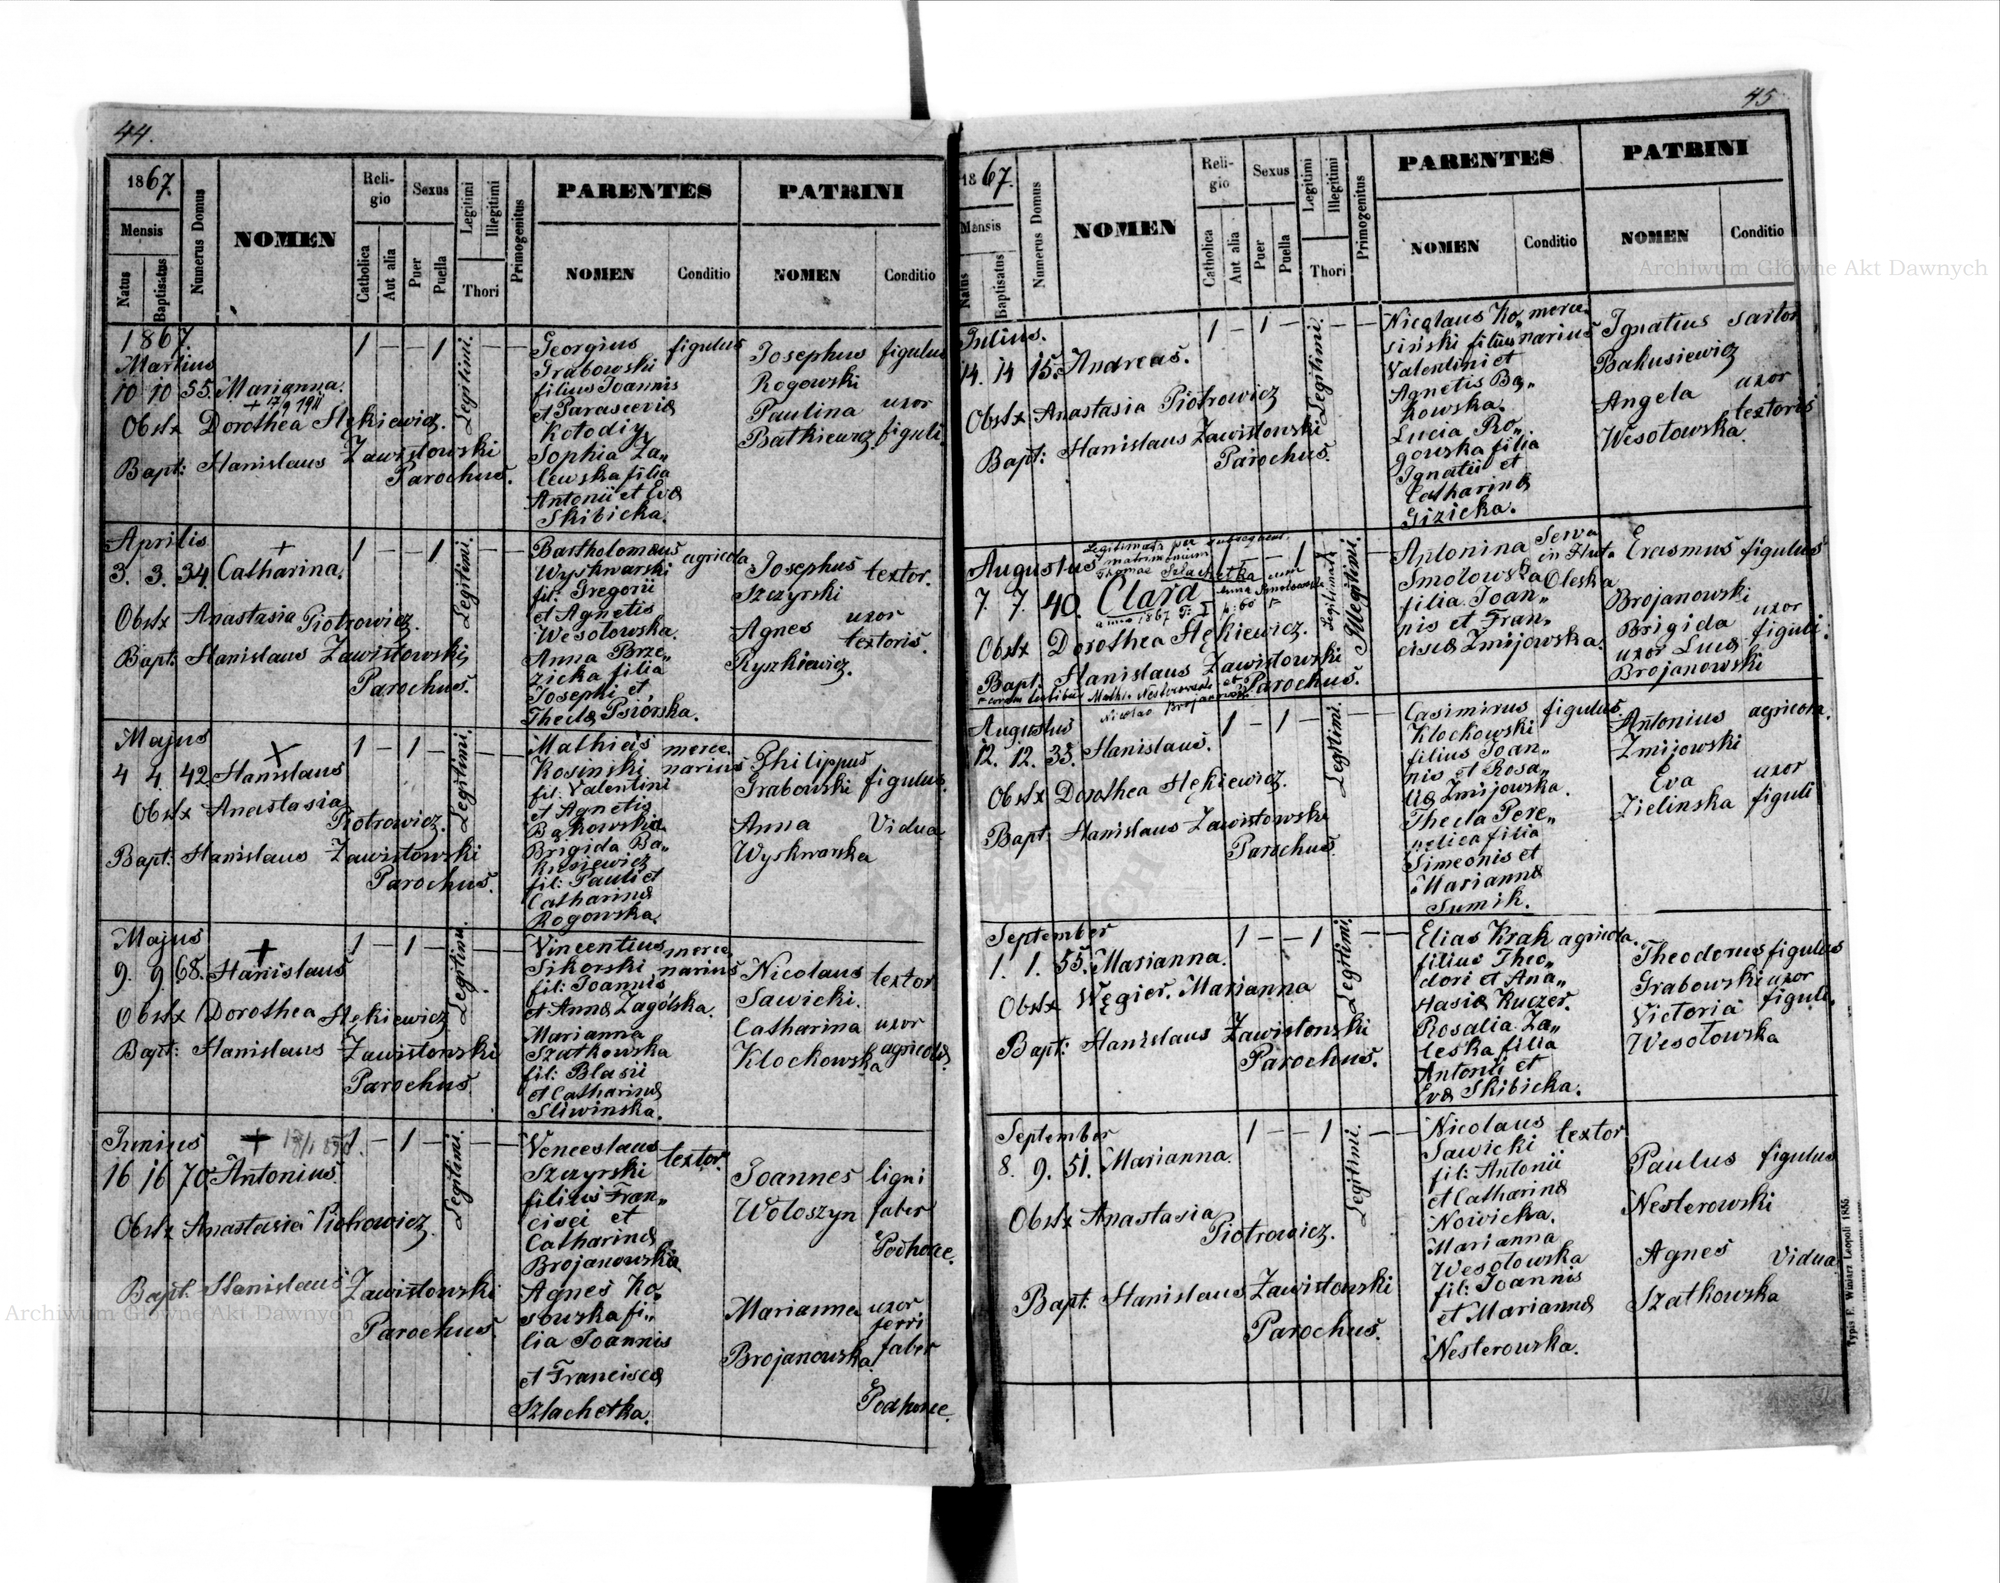 44.
1867.
Mensis
Natus
Baptisatus
Numerus Domus
NOMEN
Religio
Catholica
Aut alia
Sexus
Puer
Puella
Legitimi
Illegitimi
Thori
Primogenitus
PARENTES
NOMEN
Conditio
PATRINI
NOMEN
Conditio
1867.
Martius
10 10 55. Marianna.
+ 17/9 1911
Obstx Dorothea Stękiewicz.
Bapt: Stanislaus Zawistowski
Parochus.
1 — — 1 Legitimi. — —
Georgius figulus
Grabowski
filius Joannis
et Parasceviæ
Kotodiy
Sophia Za„
lewska filia
Antonii et Evæ
Skibicka.
Josephus figulus
Rogowski
Paulina uxor
Batkiewicz figuli.
Aprilis
3. 3. 34. Catharina.
+
Obstx Anastasia Piotrowicz.
Bapt: Stanislaus Zawistowski
Parochus.
1 — — 1 Legitimi. — —
Bartholomæus agricola
Wyskwarski
fil: Gregorii
et Agnetis
Wesołowska.
Anna Brze„
zicka filia
Josephi et
Theclæ Psiorska.
Josephus textor.
Szczyrski
Agnes uxor
textoris.
Ryszkiewicz.
Majus
4 4. 42. Stanislaus
Obstx Anastasia
Piotrowicz.
Bapt: Stanislaus Zawistowski
Parochus.
1 — 1 — Legitimi. — —
Mathias merce„
Kosinski narius
fil: Valentini
et Agnetis
Bąkowskia
Brigida Ba„
kusiewicz
fil: Pauli et
Catharinæ
Rogowska.
Philippus
Grabowski figulus.
Anna Vidua
Wyskwarska
Majus
9. 9. 68. Stanislaus
+
Obstx Dorothea Stękiewicz
Bapt: Stanislaus Zawistowski
Parochus
1 — 1 — Legitimi. — —
Vincentius merce„
Sikorski narius
fil: Joannis
et Annæ Zagólska.
Marianna
Szatkowska
fil: Blasii
et Catharinæ
Sliwinska.
Nicolaus textor
Sawicki.
Catharina uxor
Klockowska agricolæ.
Junius
16 16 70. Antonius.
+
Obstx Anastasia Piotrowicz.
Bapt. Stanislaus Zawistowski
Parochus.
1 — 1 — Legitimi. — —
Venceslaus
Szczyrski textor.
filius Fran„
cisci et
Catharinæ
Brojanowska
Agnes Ko„
sowska fi„
lia Joannis
et Franciscæ
Szlachetka.
Joannes ligni
Wołoszyn faber
Podhorce.
Marianna uxor
ferri
Brojanowska faber
Podhorce.
45
1867.
Mensis
Natus
Baptisatus
Numerus Domus
NOMEN
Religio
Catholica
Aut alia
Sexus
Puer
Puella
Legitimi
Illegitimi
Thori
Primogenitus
PARENTES
NOMEN
Conditio
PATRINI
NOMEN
Conditio
Julius.
14. 14 15. Andreas.
Obstx Anastasia Piotrowicz
Bapt: Stanislaus Zawistowski
Parochus.
1 — 1 — Legitimi. — —
Nicolaus Ko„ merce„
siński filius narius
Valentini et
Agnetis Bą„
kowska.
Lucia Ro„
gowska filia
Ignatii et
Catharinæ
Gizicka.
Ignatius sartor
Bakusiewicz
Angela uxor
textoris
Wesołowska.
Augustus
Legitimata per subsequens
matrimonium
Thomae Szlachetka cum
7. 7. 40. Clara
Obstx Dorothea Stękiewicz.
Bapt. Stanislaus Zawistowski
Parochus.
1 — — 1 Illegitimi. —
Antonina Serva
Smołowska in Huta
Oleska
filia Joan„
nis et Fran„
ciscæ Zmijowska.
Erasmus figulus
Brojanowski
Brigida uxor
uxor Lucæ figuli.
Brojanowski
Augustus
12. 12. 33. Stanislaus.
Obstx Dorothea Stękiewicz.
Bapt: Stanislaus Zawistowski
Parochus.
1 — 1 — Legitimi. — —
Casimirus figulus
Klockowski
filius Joan„
nis et Rosa„
liæ Zmijowska.
Thecla Pere„
pelica filia
Simeonis et
Mariannæ
Sumik.
Antonius agricola.
Zmijowski
Eva uxor
Zielinska figuli
September
1. 1. 55. Marianna.
Obstx Węgier. Marianna
Bapt: Stanislaus Zawistowski
Parochus.
1 — — 1 Legitimi. — —
Elias Krak agricola.
filius Theo„
dori et Ana„
stasiæ Kuczer.
Rosalia Za„
leska filia
Antonii et
Evæ Skibicka.
Theodorus figulus
Grabowski uxor
Victoria figuli.
Wesołowska
September
8. 9. 51. Marianna.
Obstx Anastasia
Piotrowicz.
Bapt: Stanislaus Zawistowski
Parochus.
1 — — 1 Legitimi. — —
Nicolaus
Sawicki textor
fil: Antonii
et Catharinæ
Nowicka.
Marianna
Wesołowska
fil: Joannis
et Mariannæ
Nesterowska.
Paulus figulus
Nesterowski
Agnes Vidua
Szatkowska
Typis E. Winiarz Leopoli 1855.
Archiwum Główne Akt Dawnych
Archiwum Główne Akt Dawnych